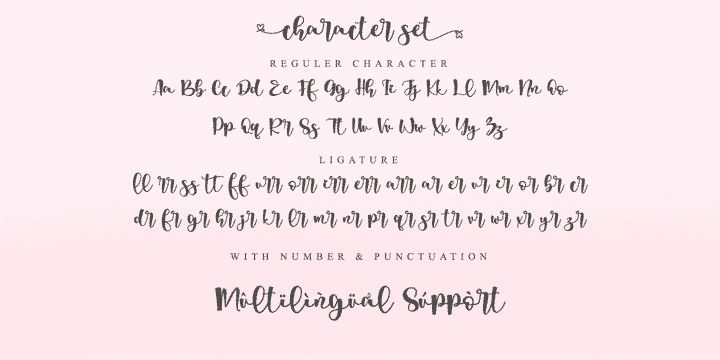 character set
REGULER CHARACTER
Aa Bb Cc Dd Ee Ff Gg Hh Ii Jj Kk Ll Mm Nn Oo
Pp Qq Rr Ss Tt Uu Vv Ww Xx Yy Zz
LIGATURE
ll rr ss tt ff urr orr irr err arr ar er ur ir or br cr
dr fr gr hr jr kr lr mr nr pr qr sr tr vr wr xr yr zr
WITH NUMBER & PUNCTUATION
Mûltïlìǹgüål Súppòrt